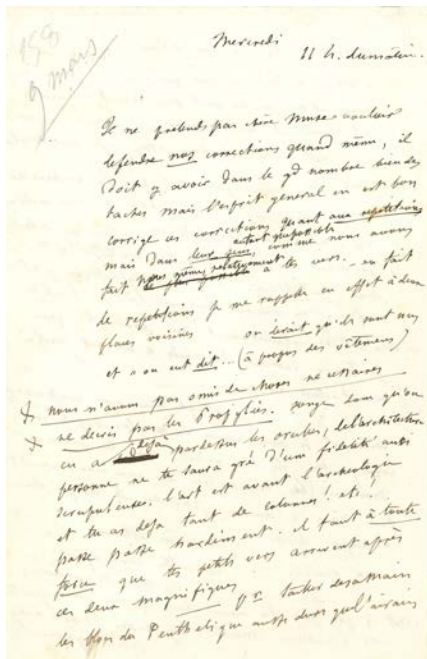 Mercredi
11 h. du matin.
9 mars
Je ne prétends pas chère Muse vouloir
défendre nos corrections quand même, il
doit y avoir dans le gd nombre bien des
taches mais l'esprit general en est bon
corrige ces corrections quant aux repetitions
mais dans leur sens, autant que possible comme nous avons
fait nous mêmes relativement à tes vers. en fait
de repetitions je me rappelle en effet à deux
places voisines on dirait qu'ils sont
et « on eut dit... (à propos des vêtemens)
+ nous n'avons pas omis de choses necessaires
+ ne decris pas les Propylées. songe donc qu'on
en a déjà pardessus les oreilles, de l'architecture
personne ne te saura gré d'une fidelité aussi
scrupuleuse. l'art est avant l'archeologie
et tu as deja tant de colonnes! etc!
passe passe hardiment. il faut à toute
force que tes petits vers arrivent après
ces deux magnifiques
pr tailler de sa main
les blocs du Penthelique aussi durs que l'airain